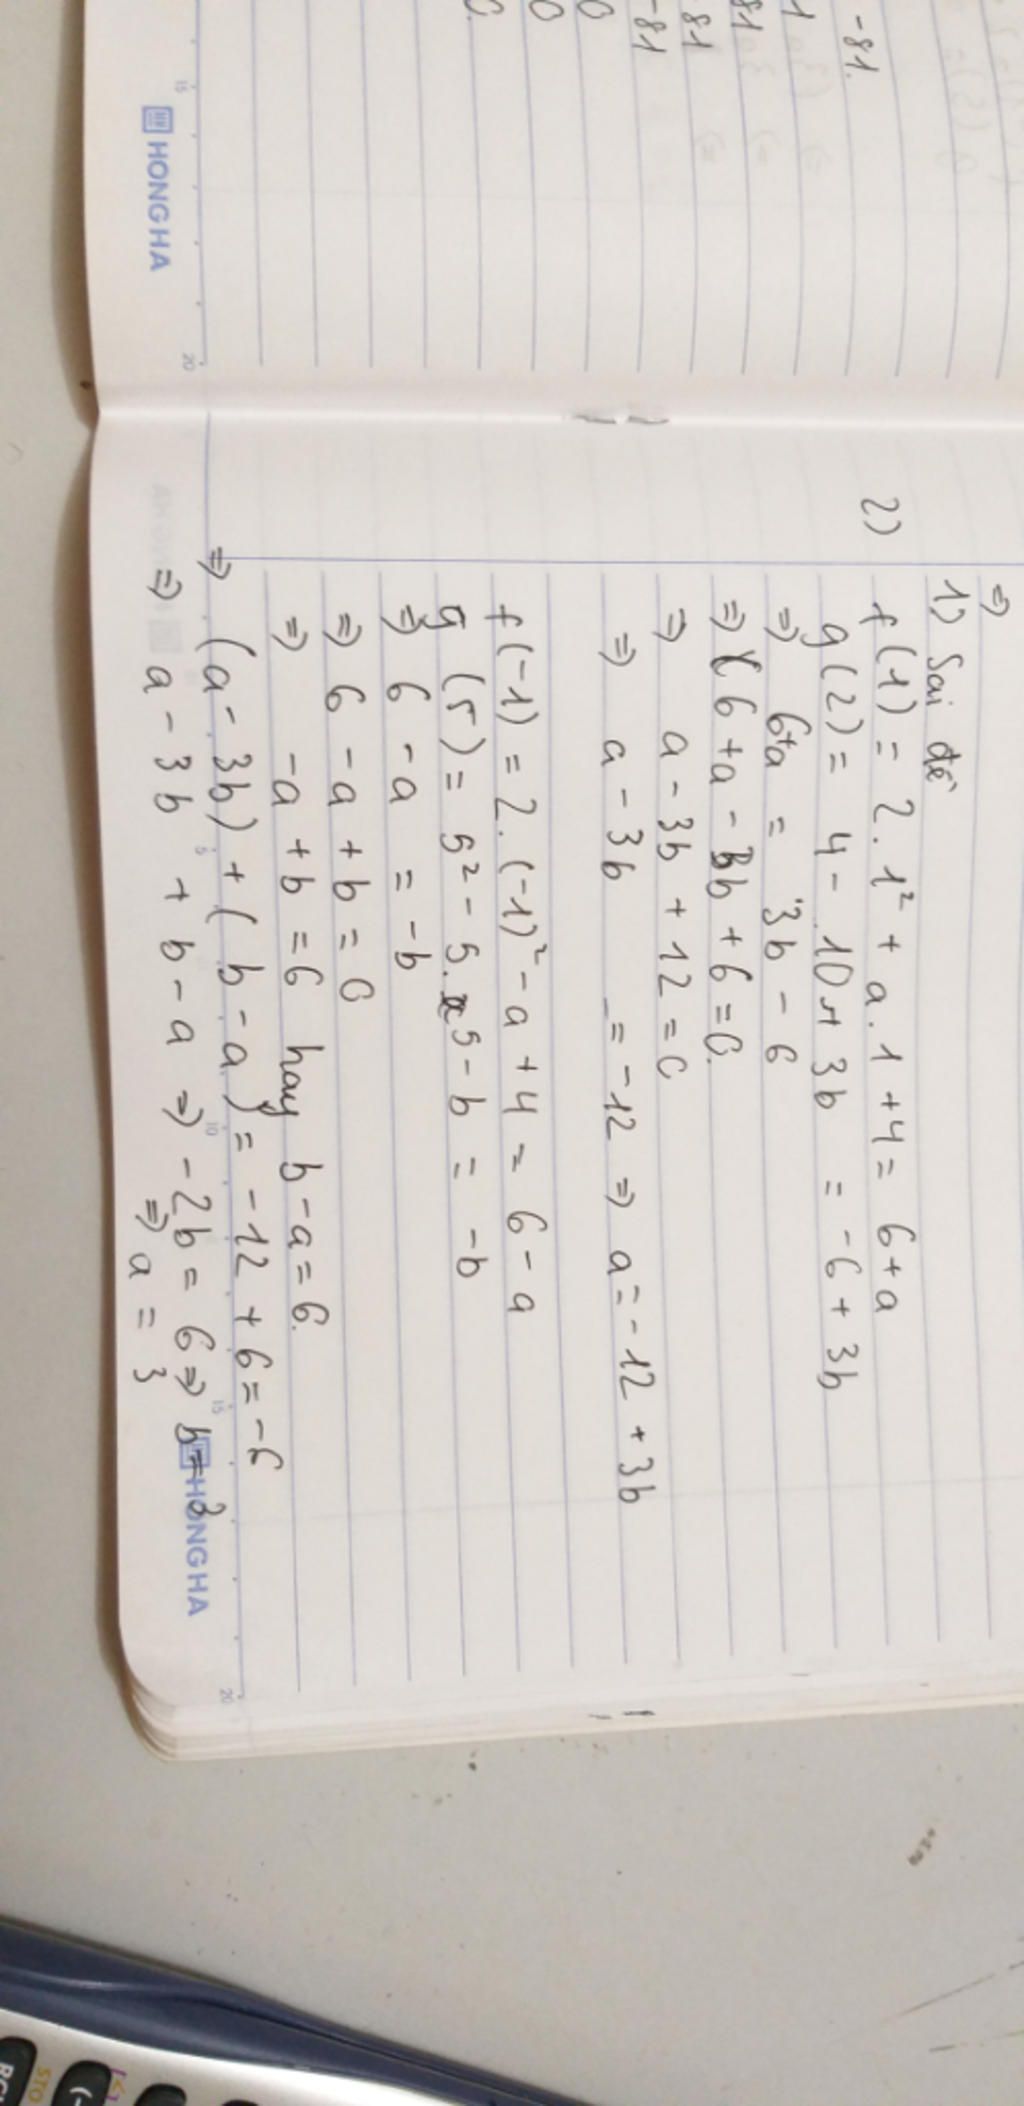 -81.
1
81
-81
-81
0
0
0
15
20
HONG HA
⇒
1) Sai đề
2) f(1) = 2.1² + a.1 + 4 = 6 + a
g(2) = 4 - 10 + 3b = -6 + 3b
⇒ 6+a = 3b - 6
⇒ 6 + a - 3b + 6 = 0.
⇒ a - 3b + 12 = 0
⇒ a - 3b = -12 ⇒ a = -12 + 3b
f(-1) = 2.(-1)² - a + 4 = 6 - a
g(5) = 5² - 5.5 - b = -b
⇒ 6 - a = -b
⇒ 6 - a + b = 0
⇒ -a + b = 6 hay b - a = 6.
⇒ (a - 3b) + (b - a) = -12 + 6 = -6
⇒ a - 3b + b - a ⇒ -2b = 6 ⇒ b = 3
⇒ a = 3
5
10
15
20
HONG HA
STO
RCL
(-)